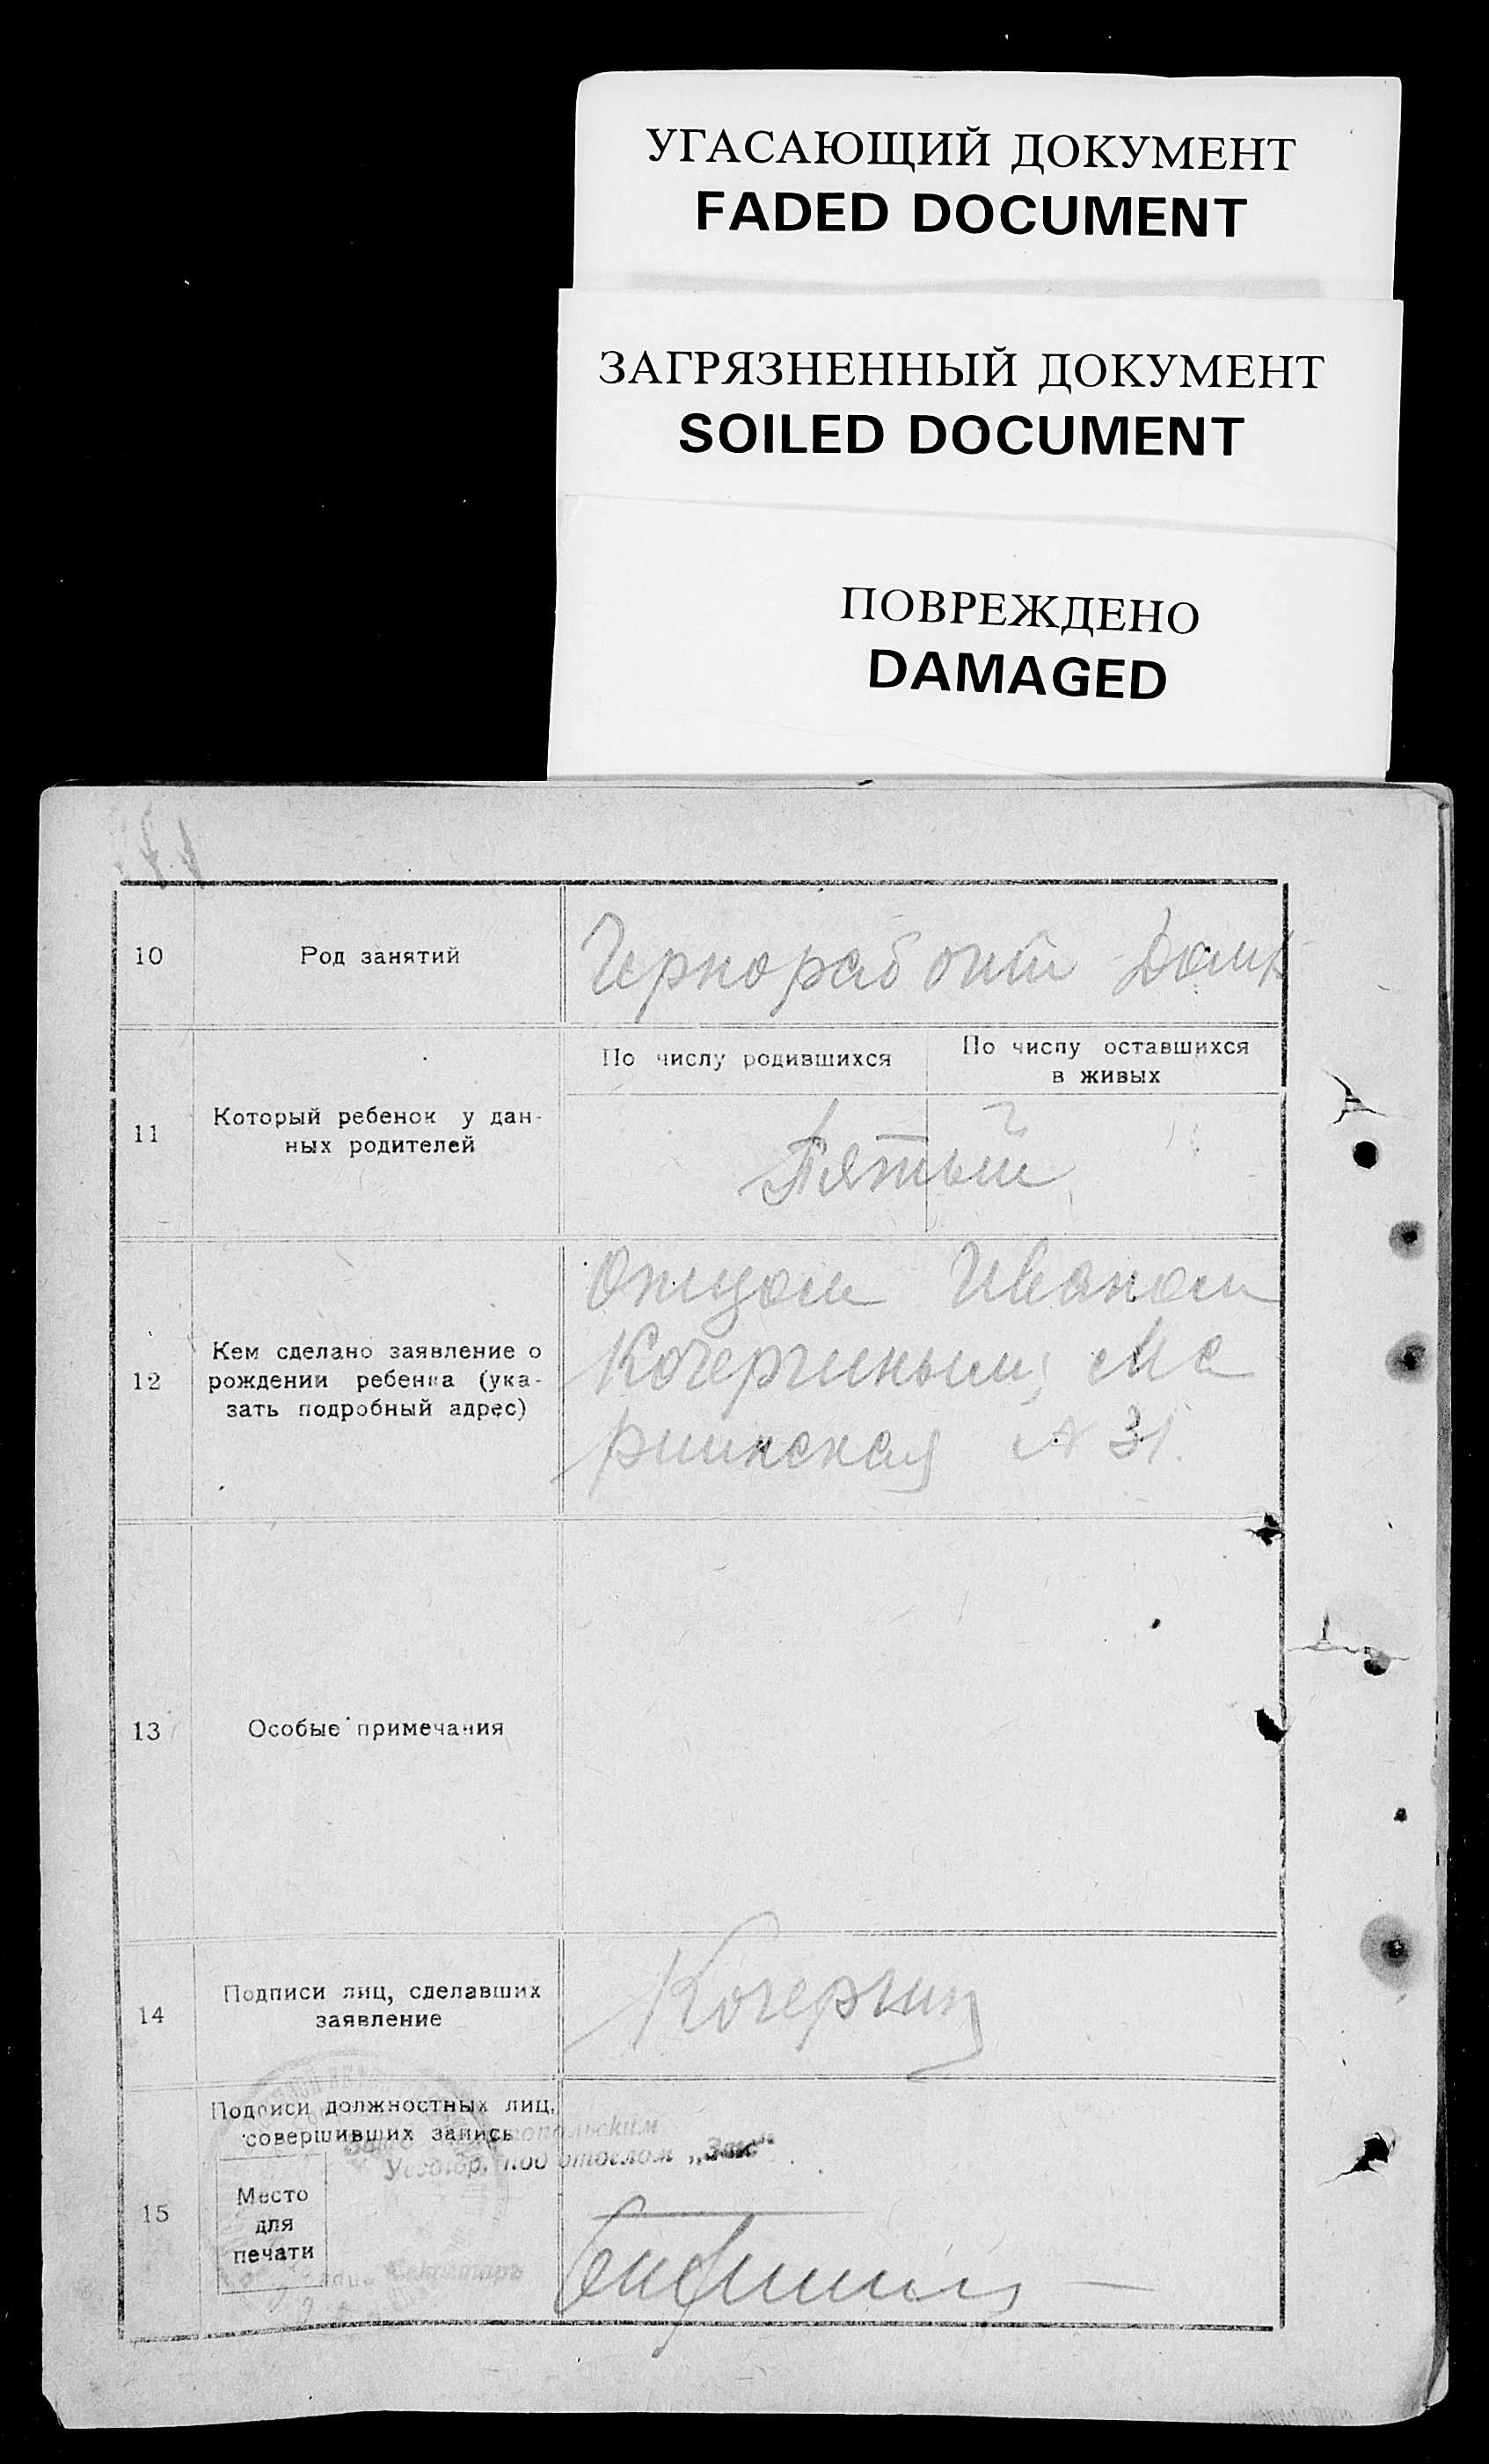 УГАСАЮЩИЙ ДОКУМЕНТ
FADED DOCUMENT
ЗАГРЯЗНЕННЫЙ ДОКУМЕНТ
SOILED DOCUMENT
ПОВРЕЖДЕНО
DAMAGED
10 Род занятий Чернорабочий
11 Который ребенок у дан-
ных родителей
По числу родившихся
По числу оставшихся
в живых
Пятый
12 Кем сделано заявление о
рождении ребенка (ука-
зать подробный адрес)
Отцом Иваном
Кочергиным, Ма
риинская № 31.
13 Особые примечания
14 Подписи лиц, сделавших
заявление
Кочергин
15 Подписи должностных лиц,
совершивших запись
под отделом „Загс“
Место
для
печати
Секретарь